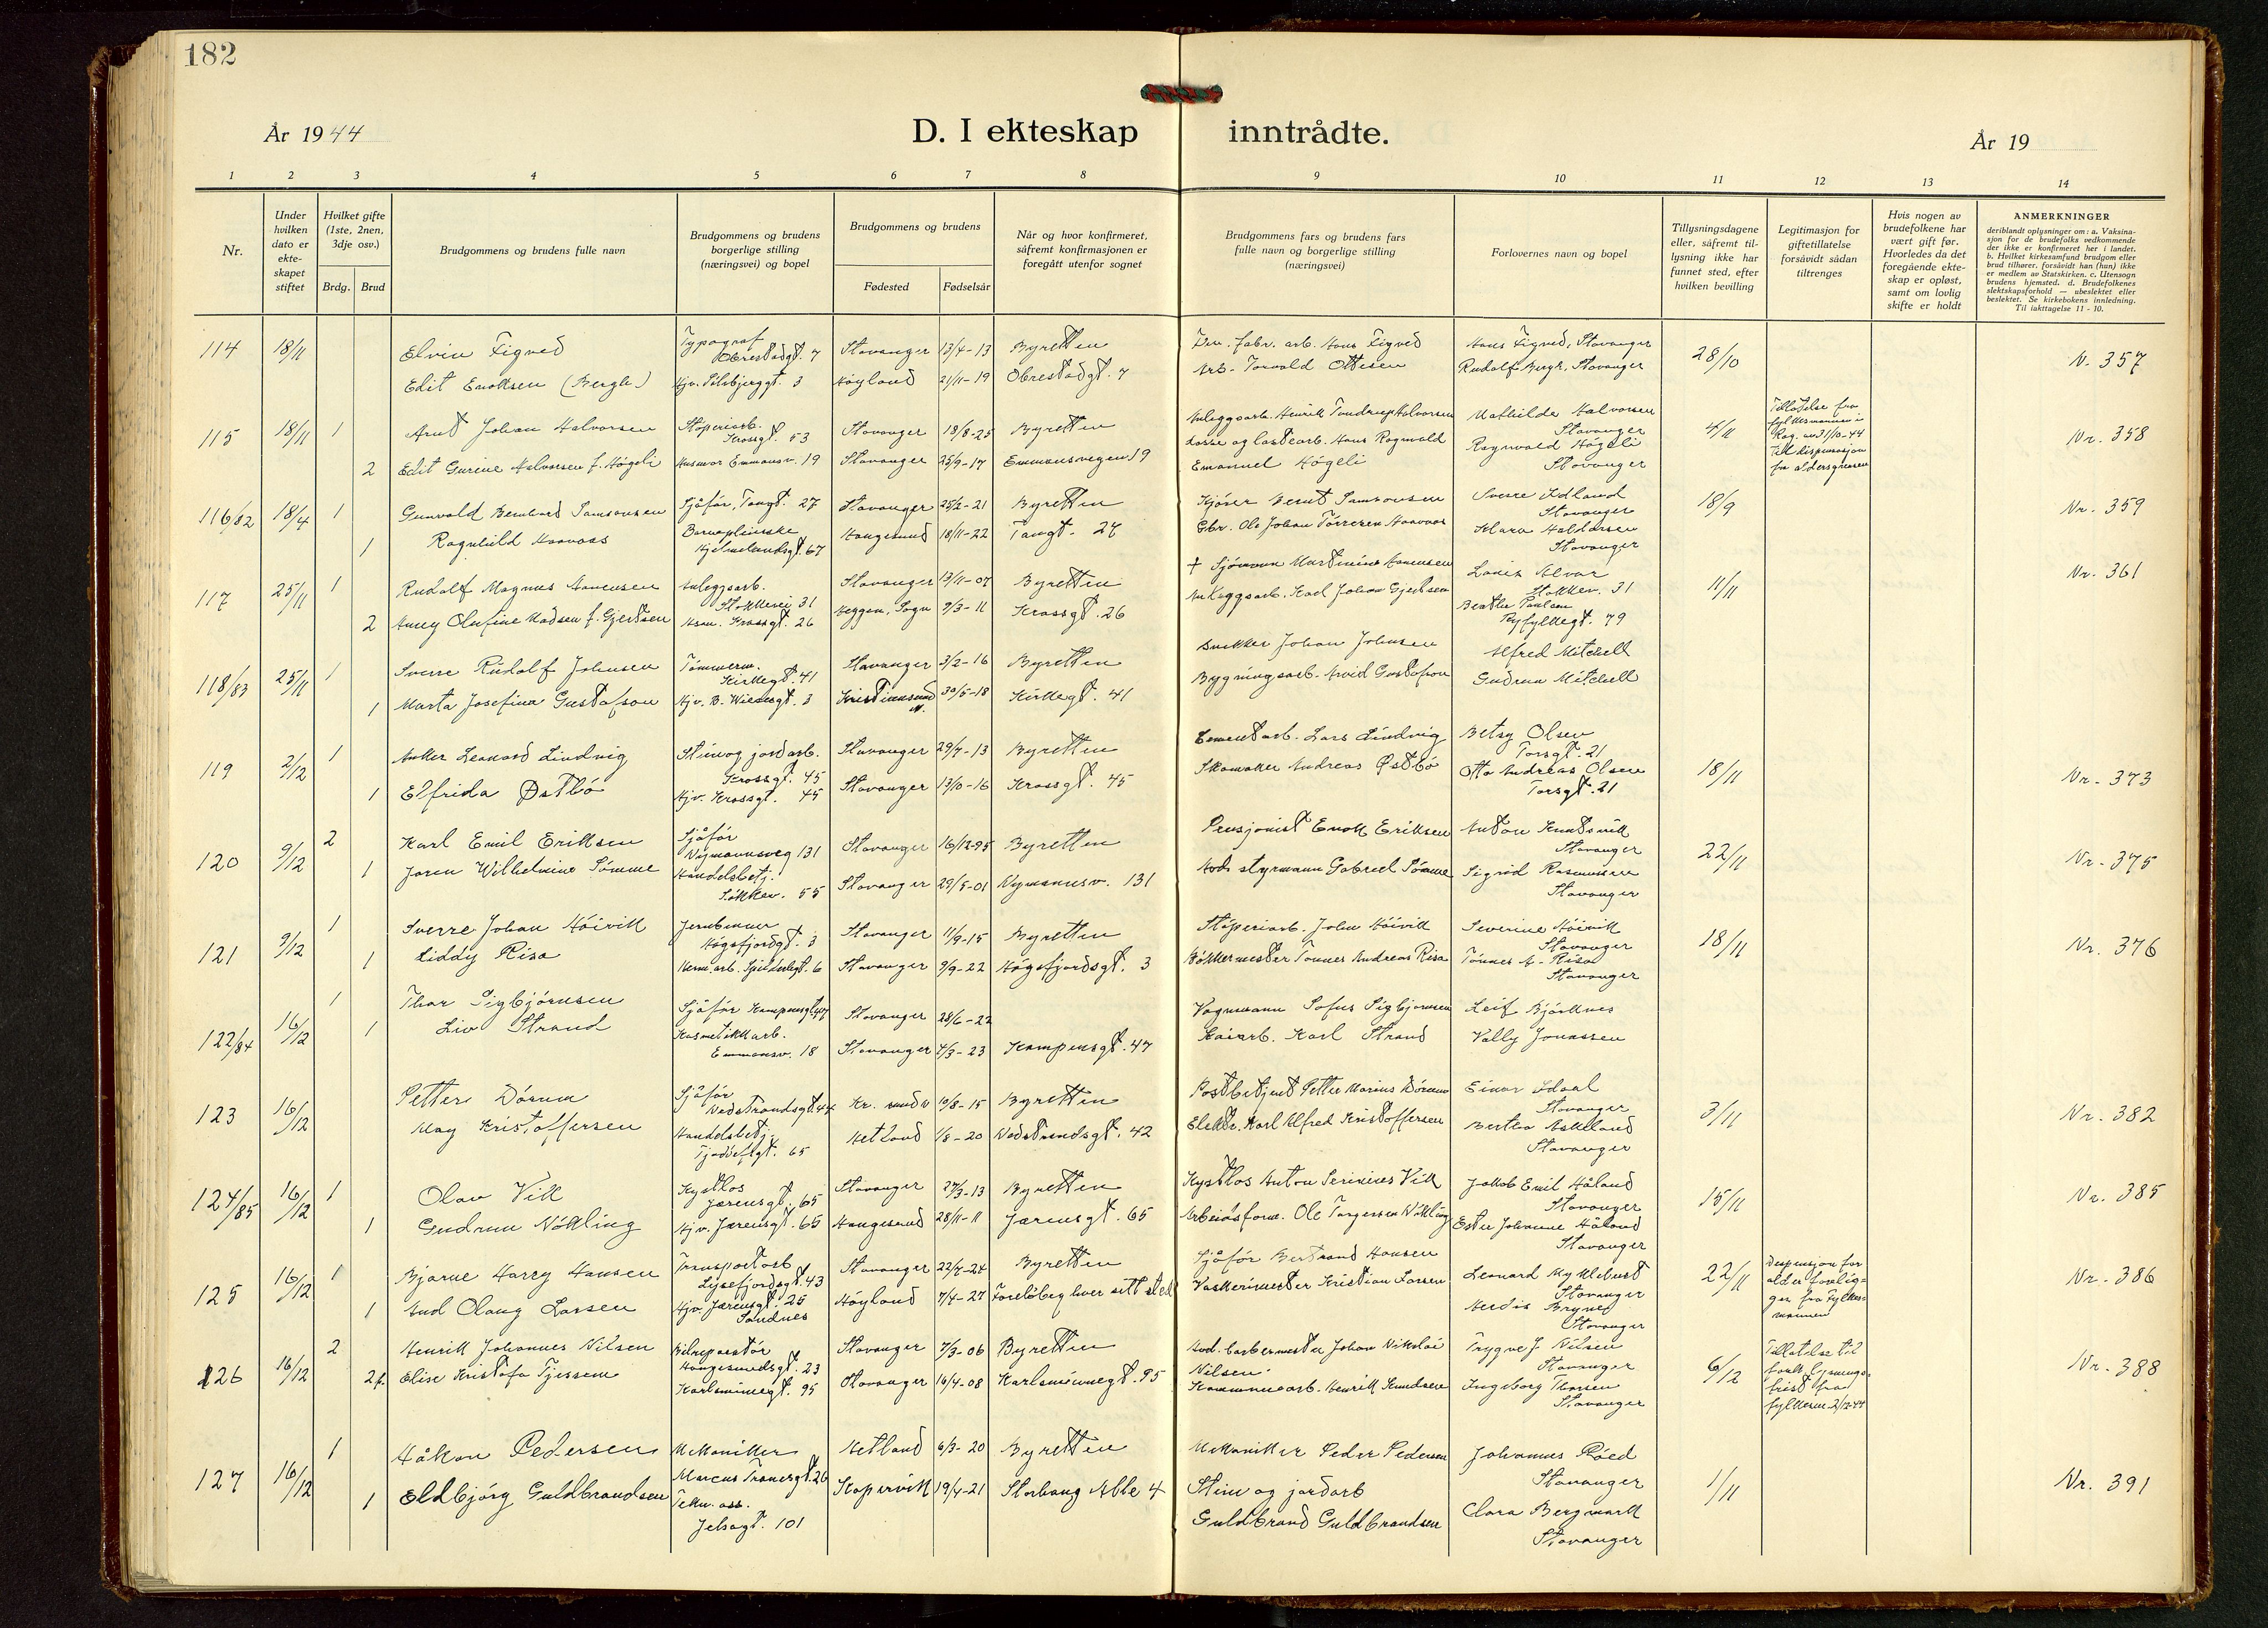 182
År 1944
D. I ekteskap inntrådte.
År 19
1 2 3 4 5 6 7 8 9 10 11 12 13 14
Nr.
Under hvilken dato er ekteskapet stiftet
Hvilket gifte (1ste, 2nen, 3dje osv.)
Brdg. Brud
Brudgommens og brudens fulle navn
Brudgommens og brudens borgerlige stilling (næringsvei) og bopel
Brudgommens og brudens
Fødested
Fødselsår
Når og hvor konfirmeret, såfremt konfirmasjonen er foregått utenfor sognet
Brudgommens fars og brudens fars fulle navn og borgerlige stilling (næringsvei)
Forlovernes navn og bopel
Tillysningsdagene eller, såfremt tillysning ikke har funnet sted, efter hvilken bevilling
Legitimasjon for giftetillatelse forsåvidt sådan tiltrenges
Hvis nogen av brudefolkene har vært gift før. Hvorledes da det foregående ekteskap er opløst, samt om lovlig skifte er holdt
ANMERKNINGER
deriblandt oplysninger om: a. Vaksinasjon for de brudefolks vedkommende der ikke er konfirmeret her i landet. b. Hvilket kirkesamfund brudgom eller brud tilhører, forsåvidt han (hun) ikke er medlem av Statskirken. c. Utensogn brudens hjemsted. d. Brudefolkenes slektskapsforhold — ubeslektet eller beslektet. Se kirkebokens innledning. Til iakttagelse 11 - 10.
114 18/11 Elvin Tigved Typograf Obrestadgt. 7 Stavanger 13/4-13 Byretten fabr. arb. Hans Tigved Hans Tigved, Stavanger 28/10 N. 357
Edit Enoksen (Bergh) Hjv. 3 Høyland 21/11-19 Obrestadgt. 7 Arb. Torvald Ottesen Rudolf Bergh, Stavanger
115 18/11 1 Arnt Johan Halvorsen Støperiarb. Krossgt. 53 Stavanger 18/8-25 Byretten Anleggsarb. Henrik Halvorsen Mathilde Halvorsen Stavanger 4/11 Tillatelse fra fylkesmannen i Rog. av 31/10-44 til dispensasjon fra aldersgrensen Nr. 358
2 Edit Gurine Halvorsen f. Høgeli Husmor Emmausv. 19 Stavanger 25/9-17 Emmausvegen 19 Losse og lastearb. Hans Ragnvald Emanuel Høgeli Ragnvald Høgeli Stavanger
116/82 18/4 1 Gunvald Bernhard Samsonsen Sjåfør, Tangt. 27 Stavanger 25/2-21 Byretten Kjører Bernt Samsonsen Sverre Idland Stavanger 18/9 Nr. 359
1 Ragnhild Haavaas Barnepleierske Hjelmelandsgt. 67 Haugesund 18/11-22 Tangt. 27 Gbr. Ole Johan Tørresen Haavaas Klara Haldorsen Stavanger
117 25/11 1 Rudolf Magnus Aanensen Anleggsarb. Stokkevei 31 Stavanger 13/11-07 Byretten + Sjømann Martinius Aanensen Louis Alvar Stokkev. 31 11/11 Nr. 361
2 Anny Olufine Madsen f. Gjertsen Krossgt. 26 Sogn 9/3-11 Krossgt. 26 Anleggsarb. Karl Johan Gjertsen Berthe Paulsen Ryfylkegt. 79
118/83 25/11 1 Sverre Rudolf Johnsen Tømmerm. Kirkegt. 41 Stavanger 3/2-16 Byretten Snekker Johan Johnsen Alfred Mitchell
1 Marta Josefina Gustafson Hjv. B. Wiesesgt. 3 Kristiansund N. 30/5-18 Kirkegt. 41 Bygningsarb. Arvid Gustafson Gudrun Mitchell
119 2/12 1 Anker Leonard Lindvig Stein og jordarb. Krossgt. 45 Stavanger 29/7-13 Byretten Cementarb. Lars Lindvig Betsy Olsen Torsgt. 21 18/11 Nr. 373
1 Elfrida Østbø Hjv. Krossgt. 45 Stavanger 13/10-16 Krossgt. 45 Skomaker Andreas Østbø Otto Andreas Olsen Torsgt. 21
120 9/12 2 Karl Emil Eriksen Sjåfør Nymannsveg 131 Stavanger 16/12-95 Byretten Pensjonist Enok Eriksen Anton Knutsvik Stavanger 22/11 Nr. 375
1 Joren Wilhelmine Sømme Handelsbetj. Stokkev. 55 Stavanger 29/5-01 Nymannsv. 131 Avd. styrmann Gabriel Sømme Sigrid Rasmussen Stavanger
121 9/12 1 Sverre Johan Høivik Jernbinner Høgsfjordgt. 3 Stavanger 11/9-15 Byretten Støperiarb. John Høivik Severine Høivik Stavanger 18/11 Nr. 376
1 Liddy Risa Herm. arb. Spilderhgt. 6 Stavanger 9/9-22 Høgsfjordsgt. 3 Bøkkermester Tønnes Andreas Risa Tønnes A. Risa Stavanger
122/84 16/12 1 Thor Sigbjørnsen Sjåfør Kampensgt. 47 Stavanger 28/6-22 Vognmann Sofus Sigbjørnsen Leif Bjørknes
1 Liv Strand Kosmetikkarb. Emmausv. 18 Stavanger 4/3-23 Kampensgt. 47 Kaiarb. Karl Strand Vally Jonassen
123 16/12 Petter Dørum Sjåfør Vedstrandsgt. 42 Kr. sund N 10/8-15 Byretten Postbetjent Petter Marius Dørum Einar Idsal Stavanger 3/11 Nr. 382
May Kristoffersen Handelsbetj. 65 Hetland 1/8-20 Vedstrandsgt. 42 Elektr. Karl Alfred Kristoffersen Bertha Askeland Stavanger
124/85 16/12 1 Olav Vik Kystlos Jærensgt. 65 Stavanger 27/3-13 Byretten Kystlos Anton Serinius Vik Jakob Emil Håland Stavanger 15/11 Nr. 385
1 Gudrun Nøkling Hjv. Jærensgt. 65 Haugesund 28/11-11 Jærensgt. 65 Arbeidsform. Ole Torgersen Nøkling Ester Johanne Håland Stavanger
125 16/12 1 Bjarne Harry Hansen Transportarb Lysefjordsgt. 43 Stavanger 22/7-24 Byretten Sjåfør Bertrand Hansen Leonard Myklebust Stavanger 22/11 Dispensjon for alder foreligger fra Fylkesmannen Nr. 386
1 Aud Olaug Larsen Hjv. Jærensgt. 25 Sandnes Høyland 7/4-27 Foreløbig hver sitt sted Vaskerimester Kristian Larsen Herdis Bryne Stavanger
126 16/12 2 Henrik Johannes Nilsen Bilreparatør Haugesundsgt. 23 Stavanger 7/3-06 Byretten Avd. barbermester Johan Nikolai Nilsen Trygve J Nilsen Stavanger 6/12 Tillatelse til fork. lysningsfrist fra fylkesm. 2/12-44 Nr. 388
2 f. Elise Kristofa Tjessem Karlsminnegt. 95 Stavanger 16/4-08 Karlsminnegt. 95 Kommunearb. Henrik Knudsen Ingeborg Thorsen Stavanger
127 16/12 1 Håkon Pedersen Mekaniker Marcus Thranesgt. 26 Hetland 6/3-20 Byretten Mekaniker Peder Pedersen Johannes Røed Stavanger 1/11 Nr. 391
1 Eldbjørg Guldbrandsen Tekn. ass. Jelsagt. 101 Kopervik 19/4-21 Storhaug Alle 4 Stein og jordarb Guldbrand Guldbrandsen Clara Bergmark Stavanger